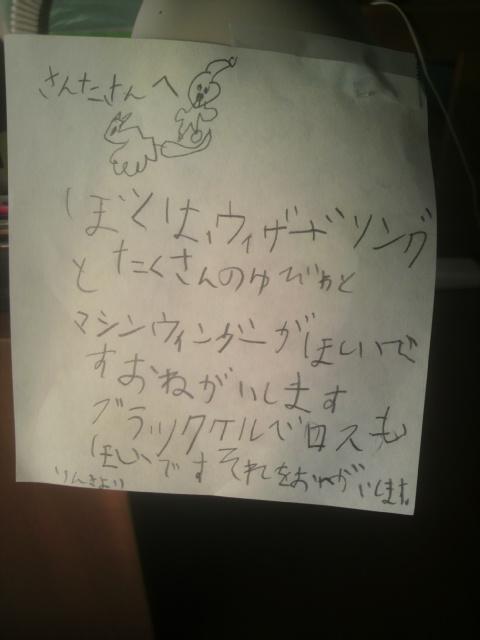 さんたさんへ
ぼくは、ウィザードソング
とたくさんのゆびわと
マシンウィンガーがほしいで
すおねがいします
ブラックケルベロスも
ほしいですそれをおねがいします。
りんきより